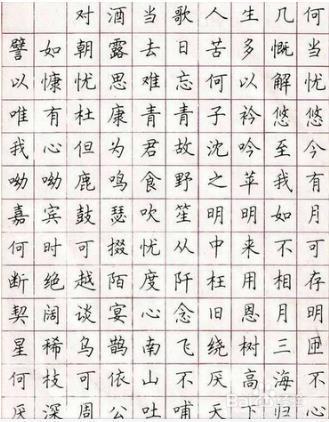 对酒当歌人生几何
譬如朝露去日苦多慨当
以慷忧思难忘何以解忧
唯有杜康青青子衿悠悠
我心但为君故沈吟至今
呦呦鹿鸣食野之苹我有
嘉宾鼓瑟吹笙明明如月
何时可掇忧从中来不可
断绝越陌度阡枉用相存
契阔谈宴心念旧恩月明
星稀乌鹊南飞绕树三匝
何枝可依山不厌高海不
厌深周公吐哺天下归心